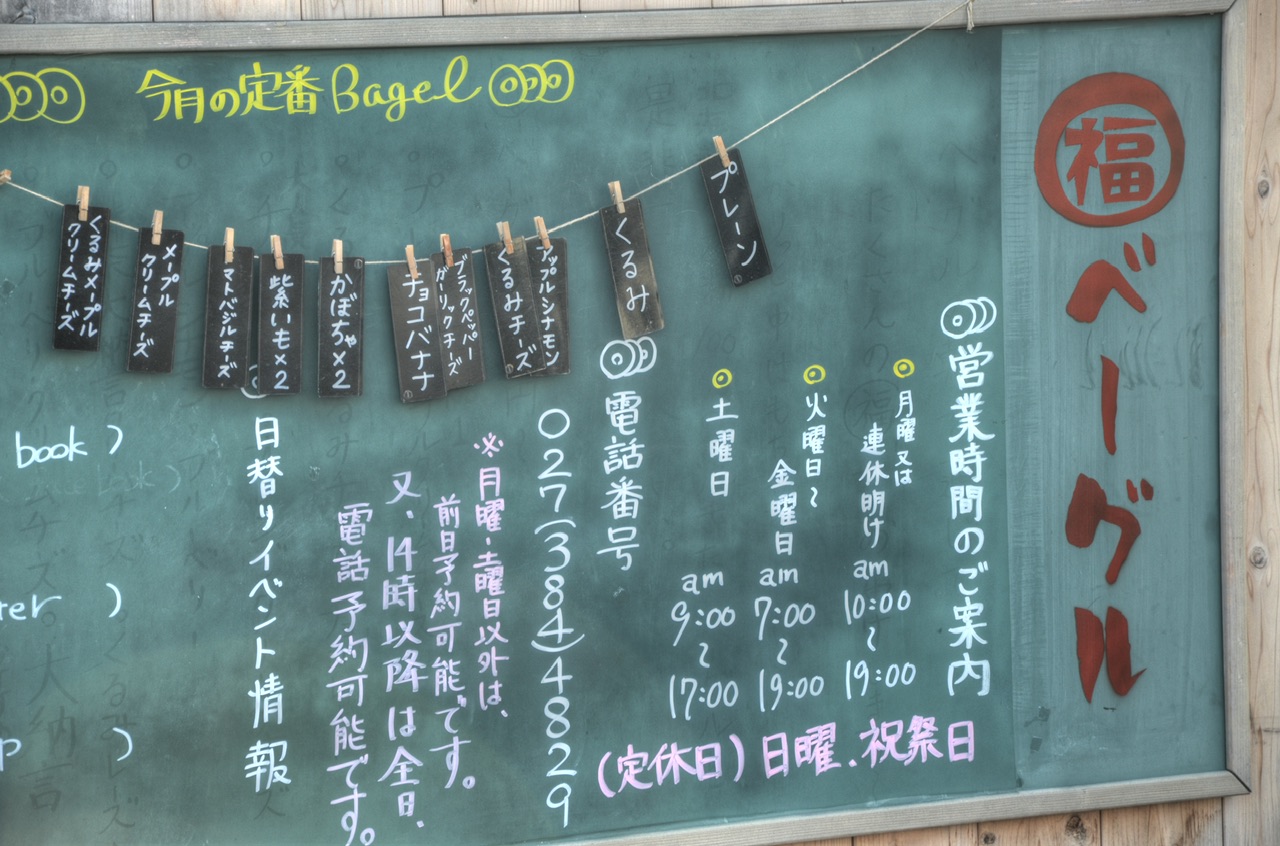 ㊗福ベーグル
今月の定番Bagel
プレーン
くるみ
アップルシナモン
くるみチーズ
ブラックペッパー
ガーリックチーズ
チョコバナナ
かぼちゃ×2
紫いも×2
マトバジルチーズ
メープル
クリームチーズ
くるみメープル
クリームチーズ
営業時間のご案内
月曜又は
連休明け am 10:00〜19:00
火曜日〜
金曜日 am 7:00〜19:00
土曜日 am 9:00〜17:00
(定休日)日曜.祝祭日
電話番号
027(384)4829
※月曜・土曜日以外は、
前日予約可能です。
又、14時以降は全日、
電話予約可能です。
日替りイベント情報
book)
rer)
p)